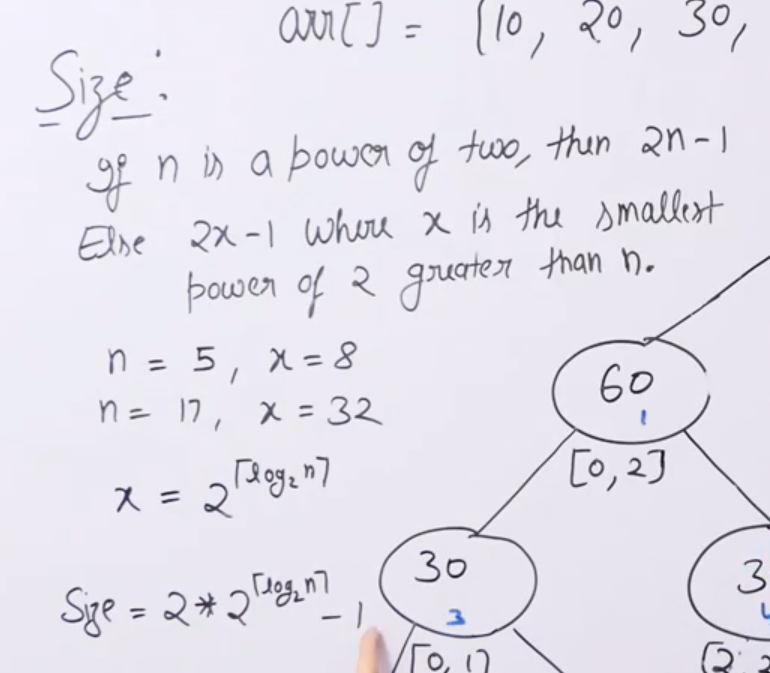 arr[] = [10, 20, 30,
Size:
If n is a power of two, then 2n-1
Else 2x-1 where x is the smallest
power of 2 greater than n.
n = 5, x = 8
n = 17, x = 32
x = 2^⌈log₂n⌉
Size = 2*2^⌈log₂n⌉ - 1
60
1
[0, 2]
30
3
3
[0, 1]